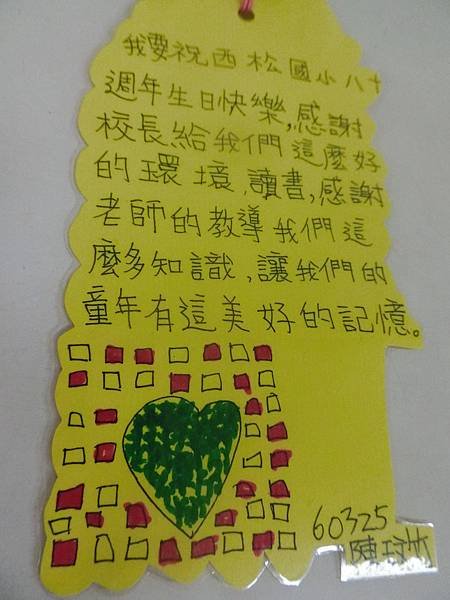 我要祝西松國小八十
週年生日快樂,感謝
校長給我們這麼好
的環境讀書,感謝
老師的教導我們這
麼多知識,讓我們的
童年有這美好的記憶。
60325
陳